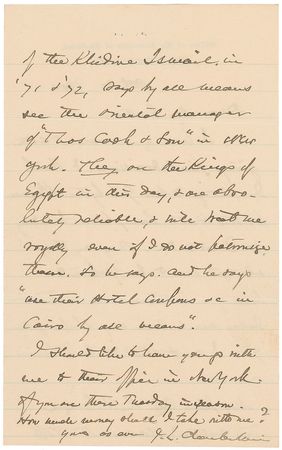 of the Khedive Ismail, in
'71 & '72, says by all means
see the oriental manager
of "Thos Cook & Son" in New
York. They are the Kings of
Egypt in this day, & are abso-
lutely reliable, & will treat me
royally even if I do not patronize
them. So he says. And he says
"use their Hotel Coupons &c in
Cairo by all means".
I should like to have you go with
me to their office in New York.
If you are there Tuesday
How much money shall I take with me?
Yours as ever J. L. Chamberlain